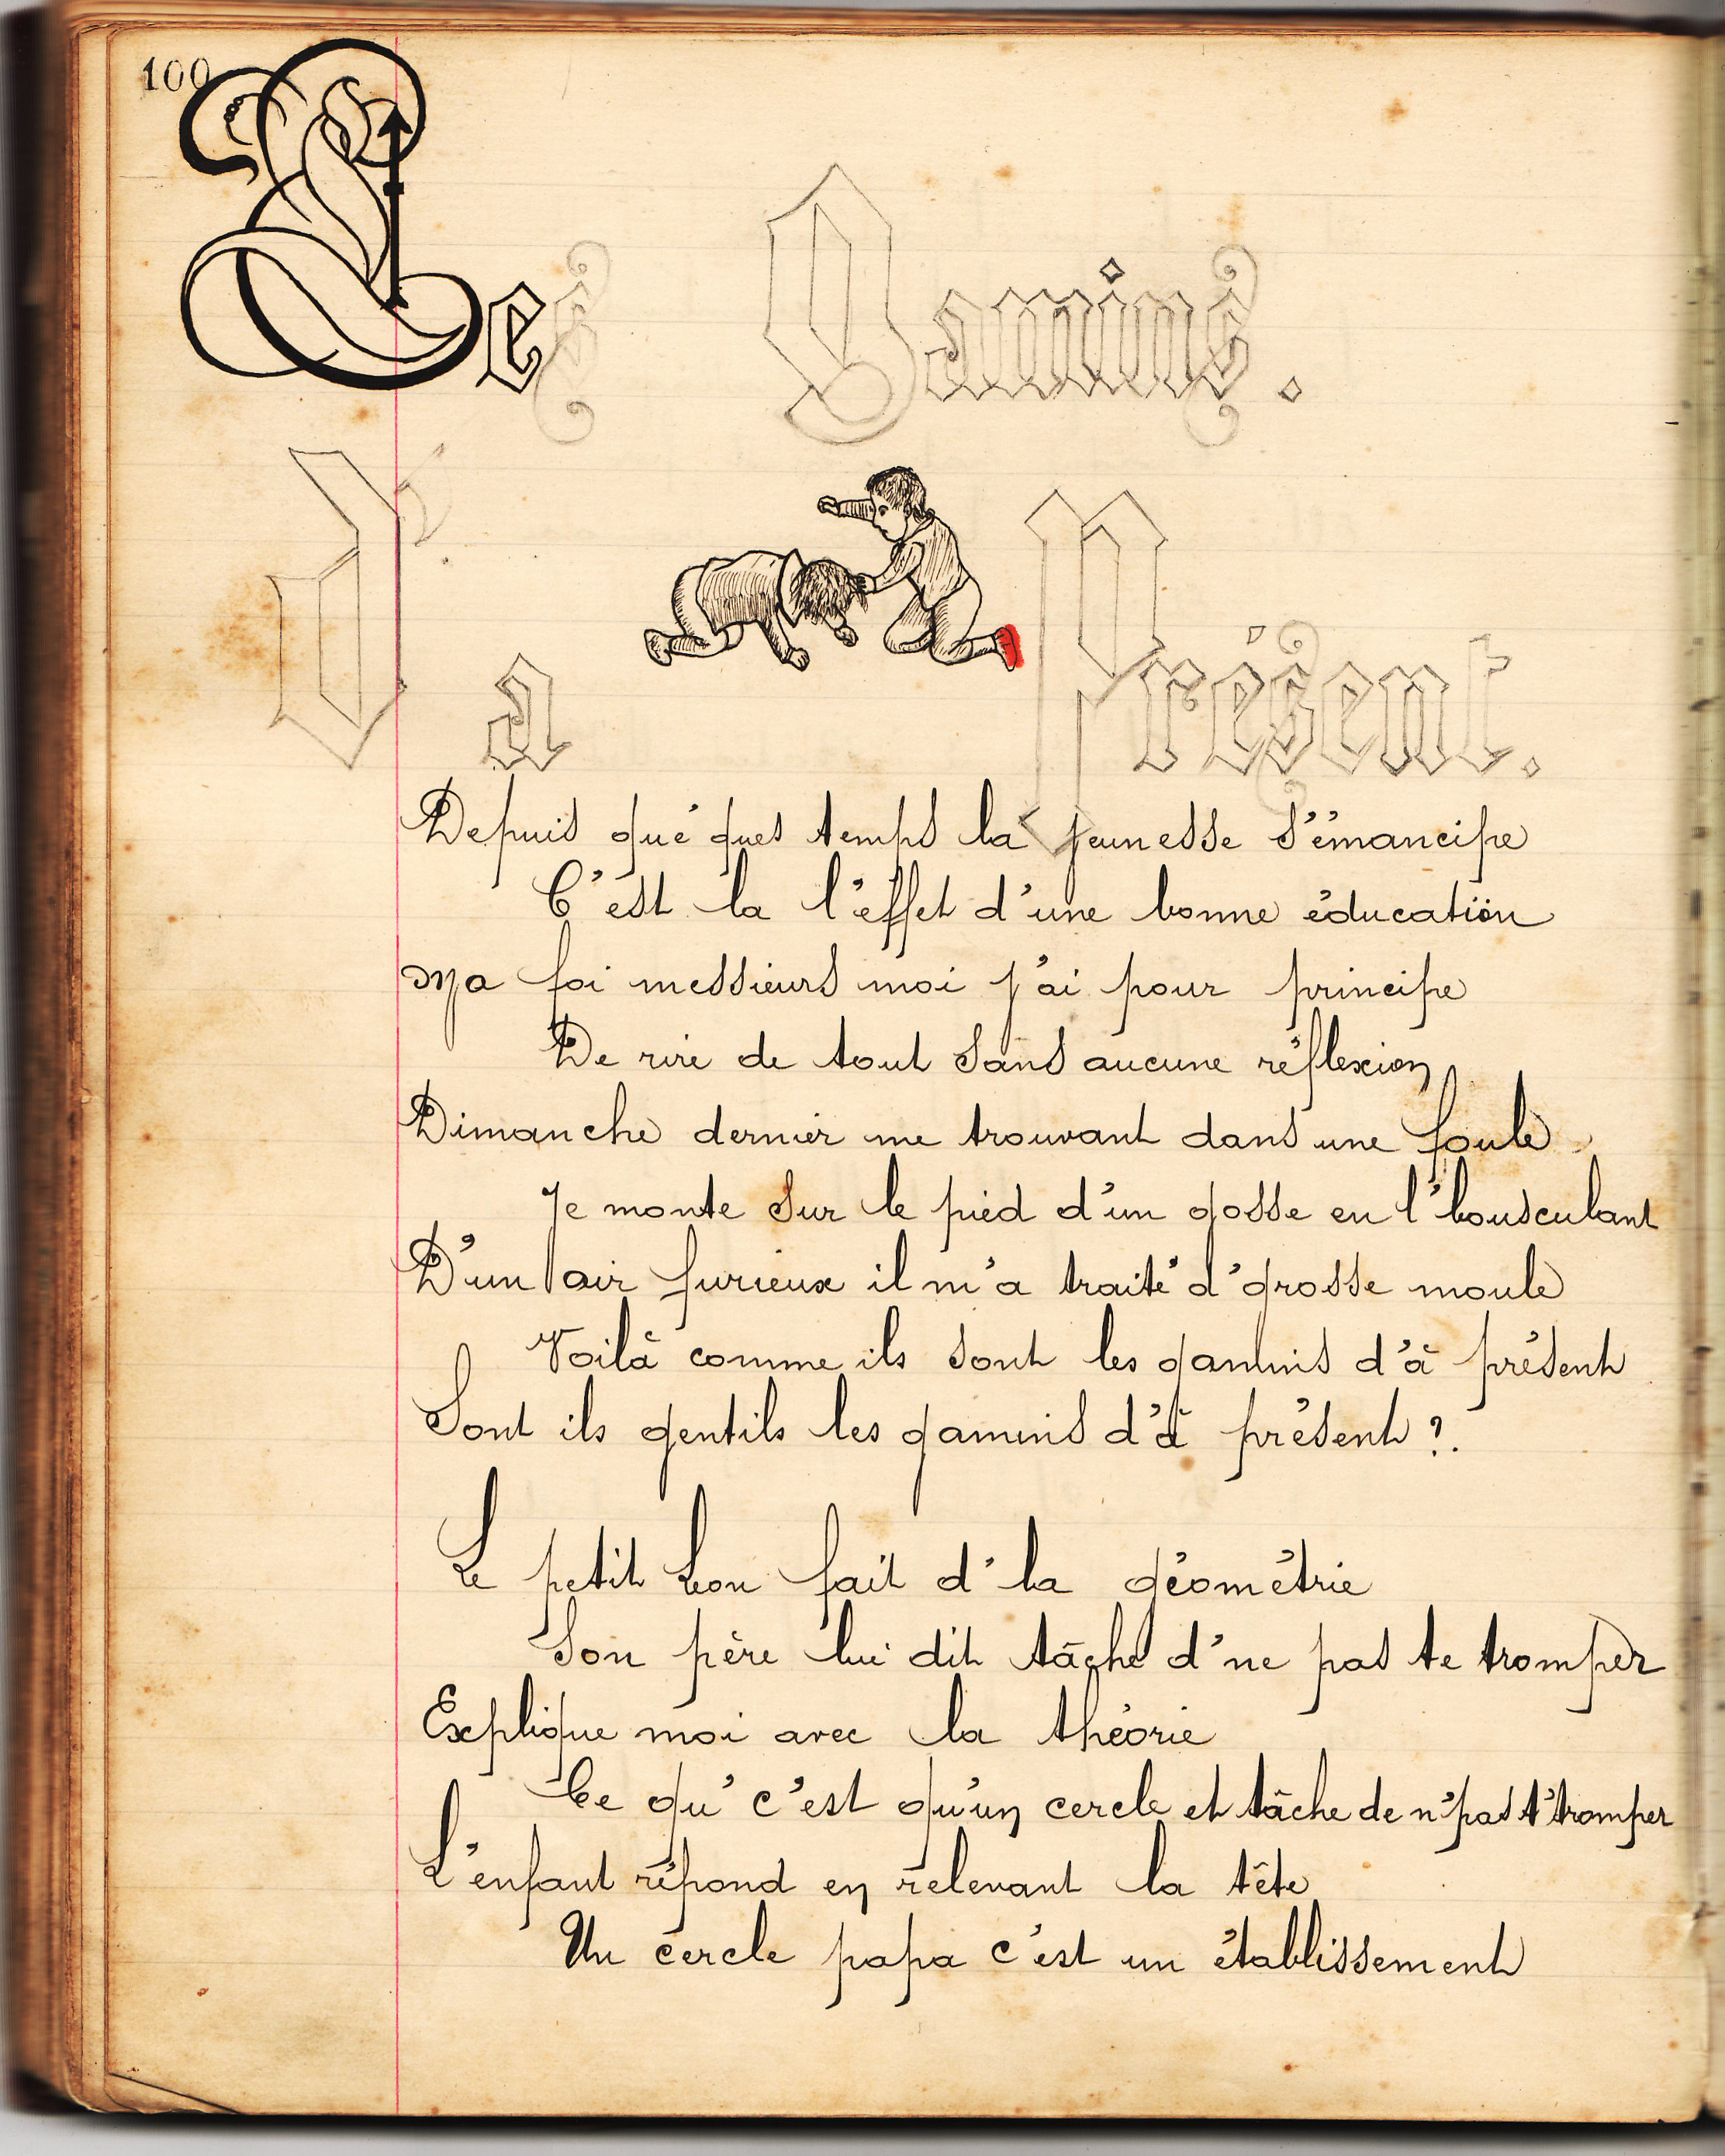 100
Les Gamins.
d'à Présent.
Depuis qué ques temps la jeunesse s'émancipe
C'est la l'effet d'une bonne éducation
Ma foi messieurs moi j'ai pour principe
De rire de tout sans aucune réflexion
Dimanche dernier me trouvant dans une foule
Je monte sur le pied d'un gosse en l'bousculant
D'un air furieux il m'a traité d'grosse moule
Voilà comme ils sont les gamins d'à présent
Sont ils gentils les gamins d'à présent ?.
Le petit Leon fait d'la géométrie
Son père lui dit tâche d'ne pas te tromper
Explique moi avec la théorie
Ce qu'c'est qu'un cercle et tâche de n'pas t'tromper
L'enfant répond en relevant la tête
Un cercle papa c'est un établissement